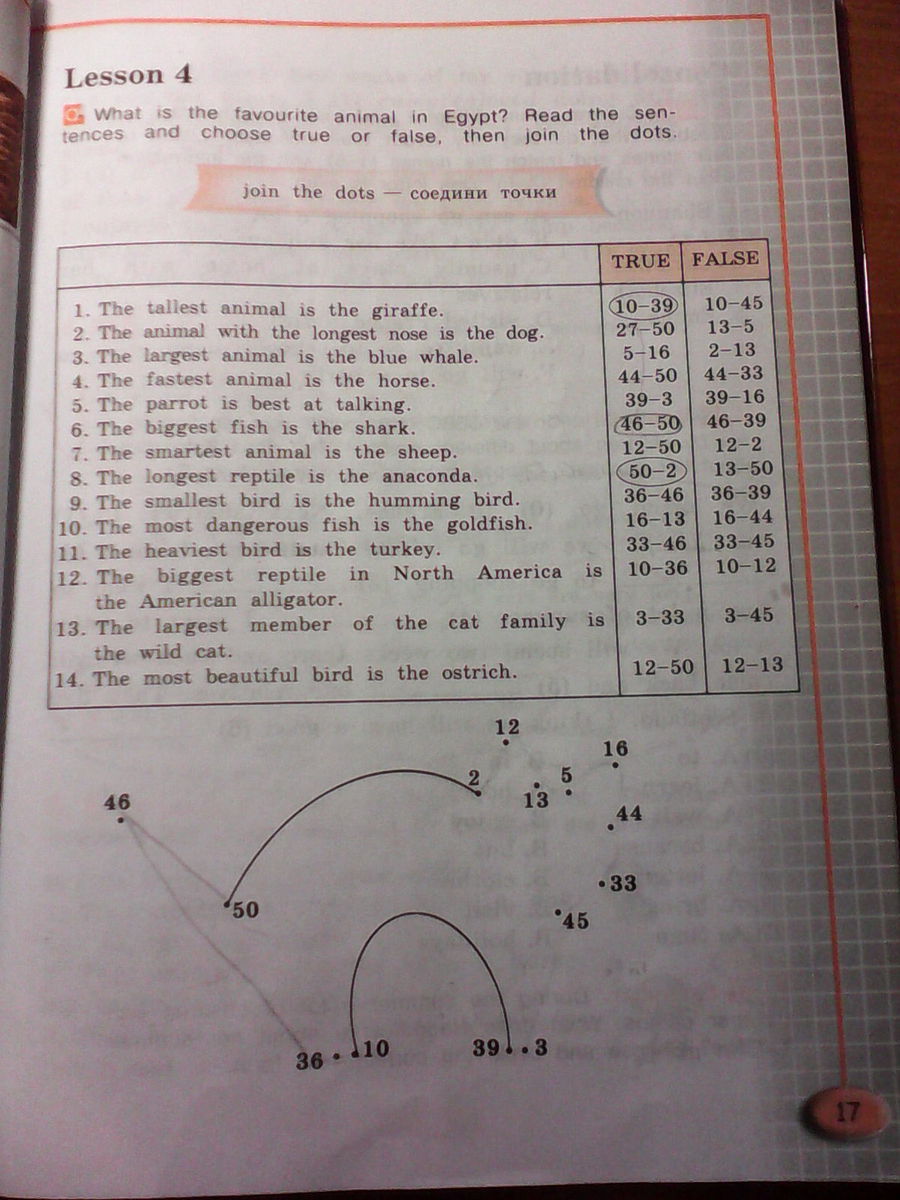 Lesson 4
What is the favourite animal in Egypt? Read the sen-
tences and choose true or false, then join the dots.
join the dots — соедини точки
TRUE FALSE
1. The tallest animal is the giraffe. 10–39 10–45
2. The animal with the longest nose is the dog. 27–50 13–5
3. The largest animal is the blue whale. 5–16 2–13
4. The fastest animal is the horse. 44–50 44–33
5. The parrot is best at talking. 39–3 39–16
6. The biggest fish is the shark. 46–50 46–39
7. The smartest animal is the sheep. 12–50 12–2
8. The longest reptile is the anaconda. 50–2 13–50
9. The smallest bird is the humming bird. 36–46 36–39
10. The most dangerous fish is the goldfish. 16–13 16–44
11. The heaviest bird is the turkey. 33–46 33–45
12. The biggest reptile in North America is 10–36 10–12
the American alligator.
13. The largest member of the cat family is 3–33 3–45
the wild cat.
14. The most beautiful bird is the ostrich. 12–50 12–13
12
16
2 5
46 13
44
33
50 45
36 10 39 3
17